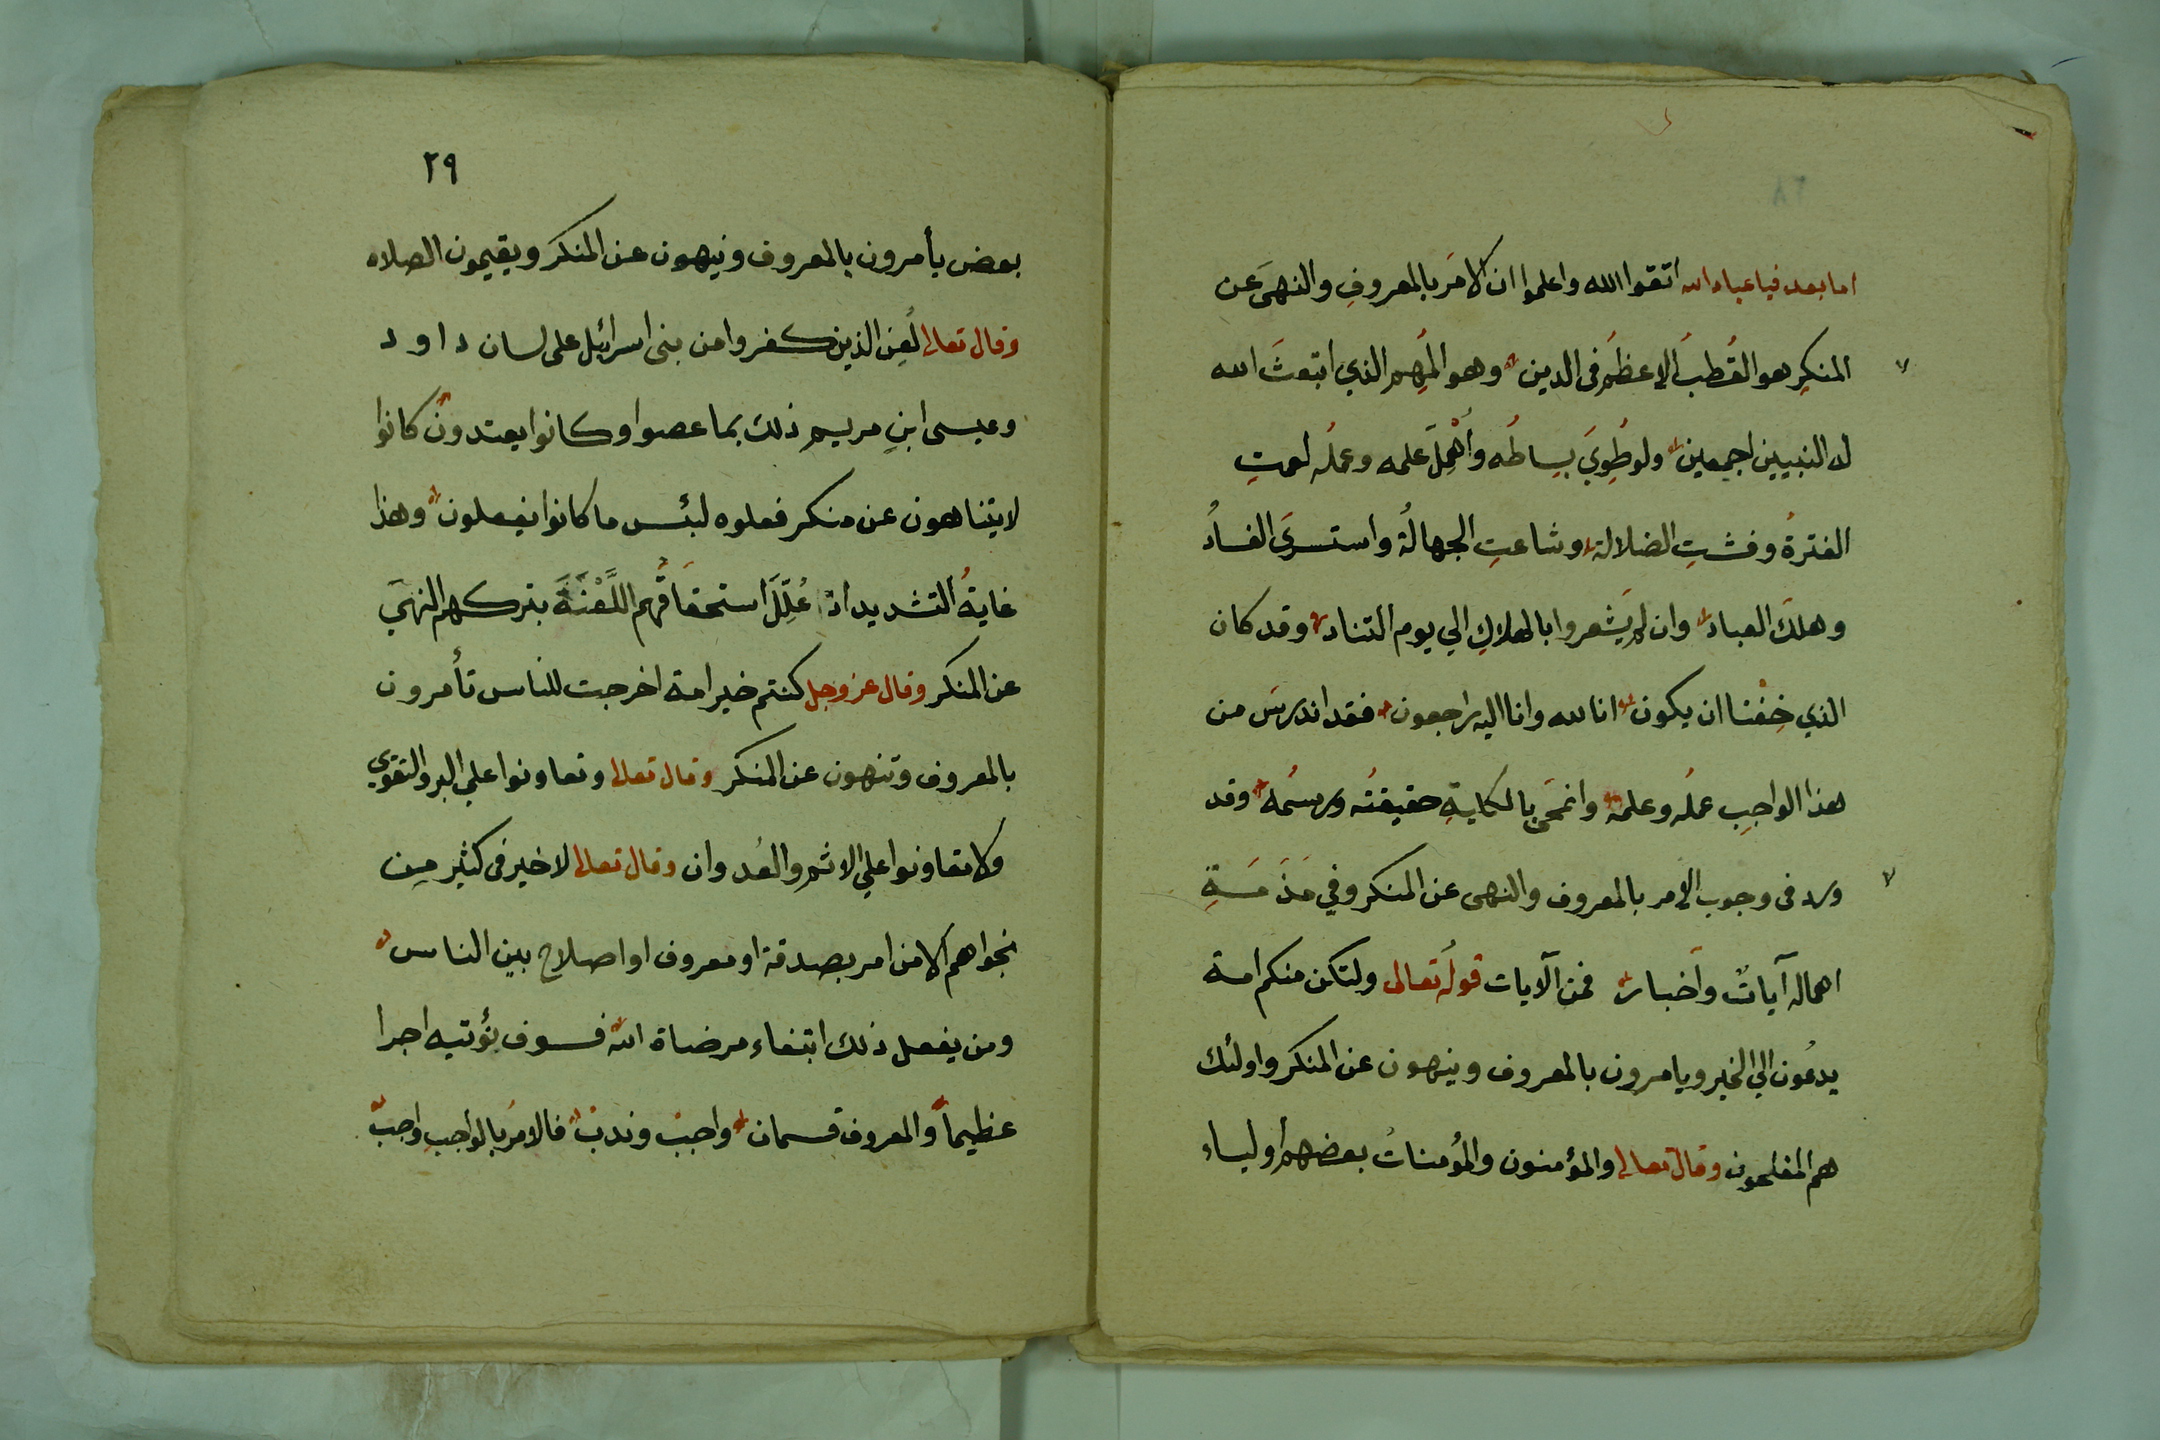 اما بعد فيا عباد الله اتقوا الله واعلموا ان الامرَ بالمعروفِ والنهىَ عن
المنكرِ هو القُطبُ الاعظمُ فى الدين وهو المُهِم الذي ابتعثَ الله
له النبيين اجمعين ولو طُوِيَ بِساطُه وأُهْمِلَ علمه وعملُه لعمتِ
الفترةُ وفشتِ الضلالة وشاعتِ الجهالةُ واستسرىَ الفسادُ
وهلكَ العباد وان لم يَشعروا بالهلاكِ الي يوم التناد وقد كان
الذي خِفْنا ان يكون انا لله وانا اليه راجعون فقد اندرسَ من
هذا الواجبِ عملُه وعلمه وانمحَى بالكليةِ حقيقتُه ورسمُه وقد
ورد فى وجوب الامر بالمعروف والنهى عن المنكر وفي مَذَمَّةِ
اهماله آياتٌ وأخبار فمن الآيات قولُه تعالى ولتكن منكم امة
يدعُون الي الخير ويامرون بالمعروف وينهون عن المنكر واولئك
هم المفلحون وقال تعالى والمؤمنون والمؤمناتُ بعضهم أولياء
٢٩
بعض يأمرون بالمعروف وينهون عن المنكر ويقيمون الصلاه
وقال تعالى لُعِن الذين كفروا من بنى اسرائيل على لسان داود
وعيسى ابنِ مريم ذلك بما عصوا وكانوا يعتدون كانوا
لا يتناهون عن منكر فعلوه لبئس ما كانوا يفعلون وهذا
غايةُ التشديد اذ عُلِّلَ استحقاقُهم اللَّعْنَةَ بتركهم النهيَ
عن المنكر وقال عز وجل كنتم خير امة اخرجت للناس تأمرون
بالمعروف وتنهون عن المنكر وقال تعالى وتعاونوا علي البر والتقوي
ولا تعاونوا علي الاثم والعُدوان وقال تعالى لا خير فى كثير من
نجواهم الا من امر بصدقة او معروف او اصلاح بين الناس
ومن يفعل ذلك ابتغاء مرضاة الله فسوف يؤتيه اجرا
عظيماً والمعروف قسمان واجبٌ وندبٌ فالامرُ بالواجبِ واجبٌ